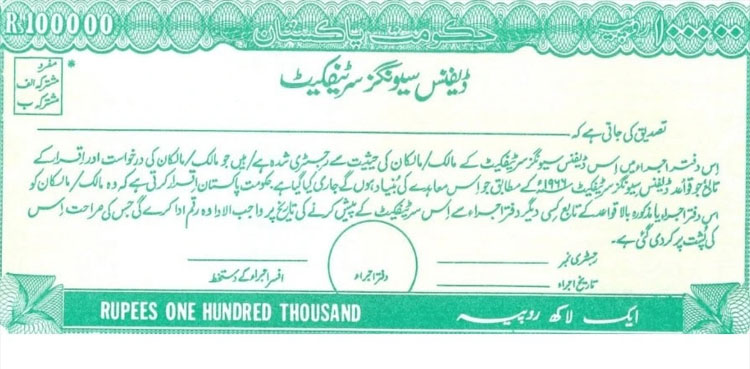 R 100000 حکومت پاکستان روپیہ ۱۰۰۰۰۰
مفرد *
مشترکہ الف
مشترکہ ب
ڈیفنس سیونگز سرٹیفکیٹ
تصدیق کی جاتی ہے کہ
اس دفتر اجراء میں اس ڈیفنس سیونگز سرٹیفکیٹ کے مالک/مالکان کی حیثیت سے رجسٹری شدہ ہے/ہیں جو مالک/مالکان کی درخواست اور اقرار کے
تابع جو قواعد ڈیفنس سیونگز سرٹیفکیٹ ۱۹۶۶ء کے مطابق جو اس معاہدے کی بنیاد ہوں گے جاری کیا گیا ہے۔ حکومت پاکستان اقرار کرتی ہے کہ وہ مالک/مالکان کو
اس دفتر اجراء یا مذکورہ بالا قواعد کے تابع کسی دیگر دفتر اجراء سے اس سرٹیفکیٹ کے پیش کرنے کی تاریخ پر واجب الادا وہ رقم ادا کرے گی جس کی صراحت اس
کی پشت پر کر دی گئی ہے۔
رجسٹری نمبر
تاریخ اجراء
دفتر اجراء
افسر اجراء کے دستخط
RUPEES ONE HUNDRED THOUSAND ایک لاکھ روپیہ